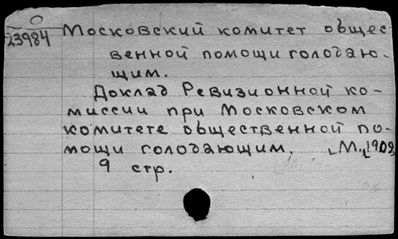 23984
Московский комитет общес-
венной помощи голодаю-
щим.
Доклад Ревизионной ко-
миссии при Московском
комитете общественной по-
мощи голодающим. [М., 1909]
9 стр.